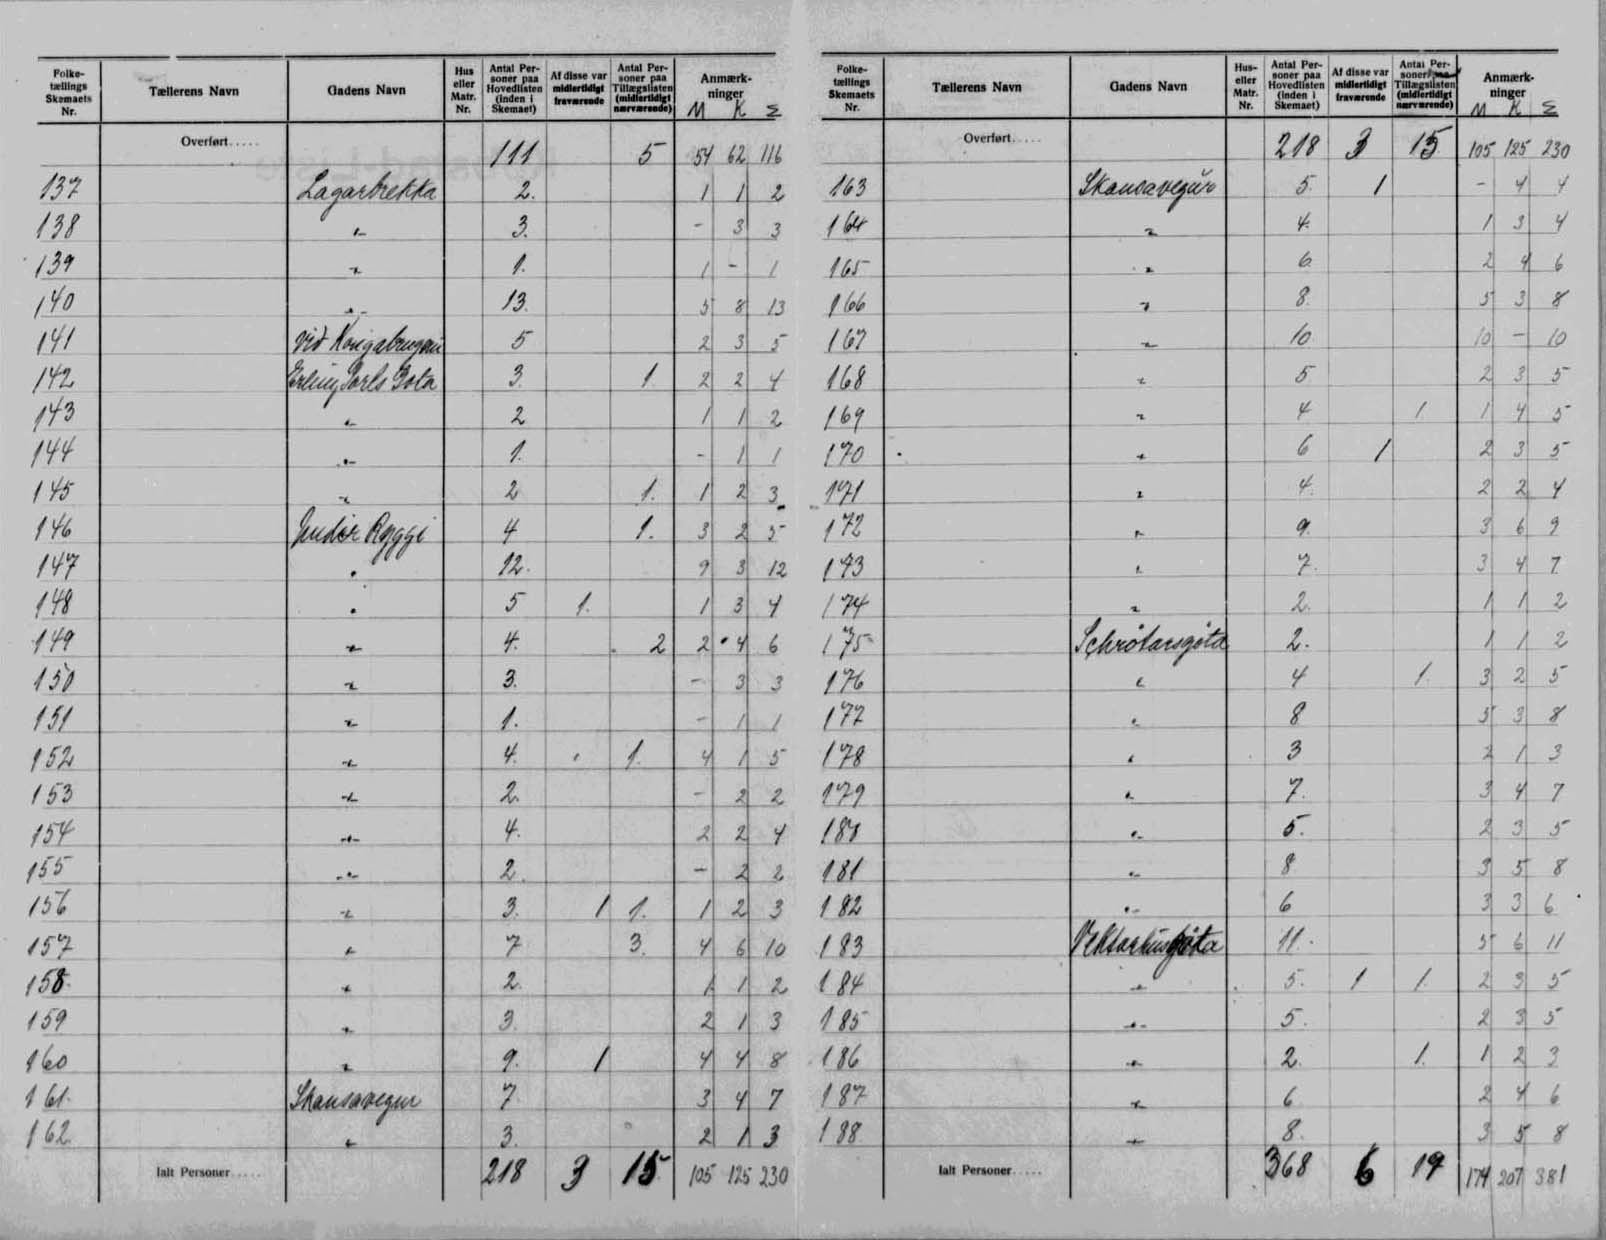 Folke-tællings Skemaets Nr. Tællerens Navn Gadens Navn Hus eller Matr. Nr. Antal Personer paa Hovedlisten (inden i Skemaet) Af disse var midlertidigt fraværende Antal Personer paa Tillægslisten (midlertidigt nærværende) Anmærkninger M K Σ
Overført..... 111 5 54 62 116
137 Lagarbrekka 2. 1 1 2
138 " 3. - 3 3
139 " 1. 1 - 1
140 " 13. 5 8 13
141 Við Kongabrugvin 5 2 3 5
142 Erling Jarls Gøta 3. 1 2 2 4
143 " 2 1 1 2
144 " 1. - 1 1
145 " 2 1. 1 2 3
146 Undir Ryggi 4 1. 3 2 5
147 " 12. 9 3 12
148 " 5 1. 1 3 4
149 " 4. 2 2 4 6
150 " 3. - 3 3
151 " 1. - 1 1
152 " 4. 1. 4 1 5
153 " 2. - 2 2
154 " 4. 2 2 4
155 " 2. - 2 2
156 " 3. 1 1. 1 2 3
157 " 7 3. 4 6 10
158. " 2. 1 1 2
159 " 3. 2 1 3
160 " 9. 1 4 4 8
161. Skansavegur 7. 3 4 7
162. " 3. 2 1 3
Ialt Personer..... 218 3 15. 105 125 230
Folke-tællings Skemaets Nr. Tællerens Navn Gadens Navn Hus- eller Matr. Nr. Antal Personer paa Hovedlisten (inden i Skemaet) Af disse var midlertidigt fraværende Antal Personer paa Tillægslisten (midlertidigt nærværende) Anmærkninger M K Σ
Overført..... 218 3 15 105 125 230
163 Skansavegur 5. 1 - 4 4
164 " 4. 1 3 4
165 " 6. 2 4 6
166 " 8. 5 3 8
167 " 10. 10 - 10
168 " 5 2 3 5
169 " 4 1. 1 4 5
170 " 6 1 2 3 5
171 " 4. 2 2 4
172 " 9. 3 6 9
173 " 7. 3 4 7
174 " 2. 1 1 2
175 Schrøtarsgøta 2. 1 1 2
176 " 4 1. 3 2 5
177 " 8 5 3 8
178 " 3 2 1 3
179 " 7. 3 4 7
180 " 5. 2 3 5
181 " 8 3 5 8
182 " 6 3 3 6
183 Vektarhusgøta 11. 5 6 11
184 " 5. 1 1. 2 3 5
185 " 5. 2 3 5
186 " 2. 1. 1 2 3
187 " 6 2 4 6
188 " 8. 3 5 8
Ialt Personer..... 368 6 19 174 207 381